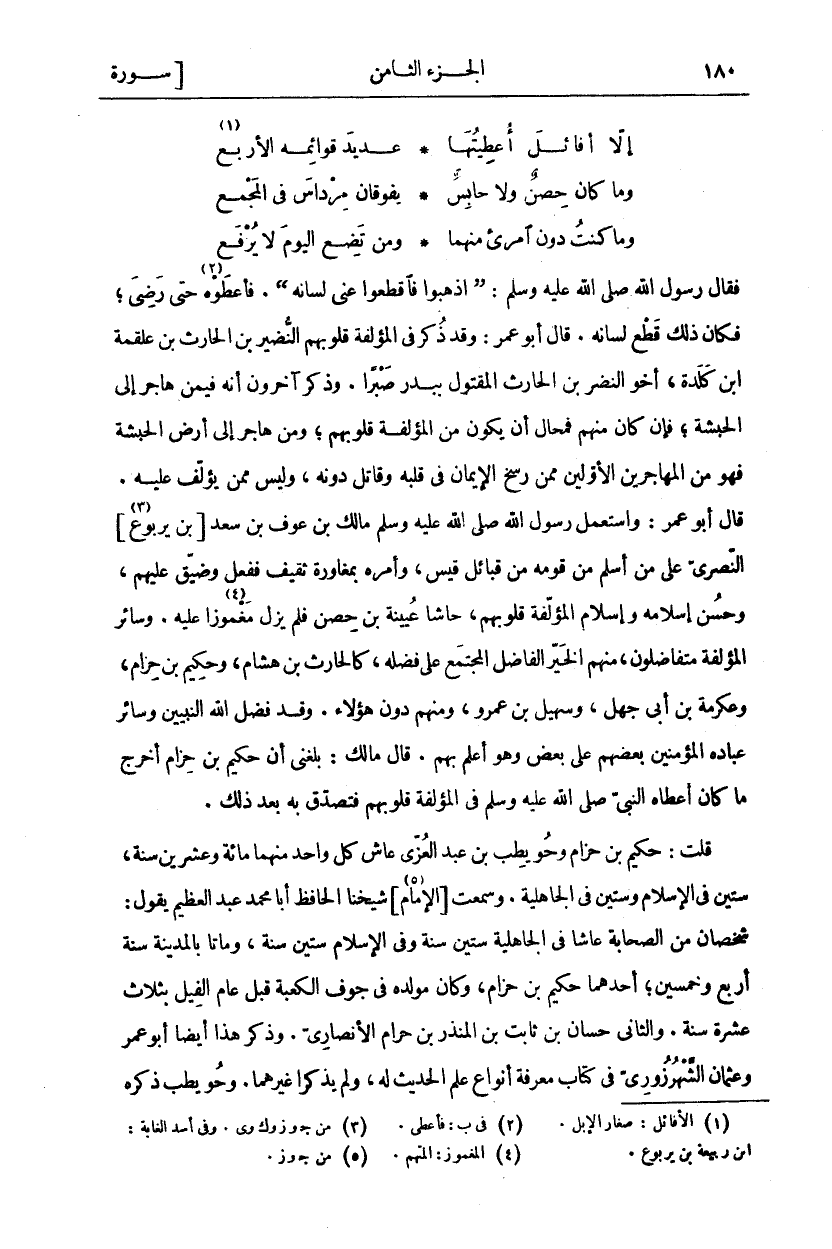 ١٨٠ الجـــزء الثـامن [ ســـورة
إلّا أفائــلَ أُعطِيتُهَـا * عـــديدَ قوائِمــه الأربـعِ (١)
وما كان حِصنٌ ولا حابِسٌ * يفوقان مِرْداسَ فى المَجْمَـع
وما كنتُ دون آمرئ منهما * ومن تَضِـع اليومَ لا يُرْفَـع
فقال رسول الله صلى الله عليه وسلم : ” اذهبوا فآقطعوا عنى لسانه “ . فأعطَوْه (٢) حتى رَضِىَ ؛
فكان ذلك قَطْع لسانه . قال أبو عمر : وقد ذُكر فى المؤلفة قلوبهم النُّضير بن الحارث بن علقمة
ابن كَلَدة ، أخو النضر بن الحارث المقتول ببــدر صَبْرًا . وذكر آخرون أنه فيمن هاجر إلى
الحبشة ؛ فإن كان منهم فمحال أن يكون من المؤلفــة قلوبهم ؛ ومن هاجر إلى أرض الحبشة
فهو من المهاجرين الأوّلين ممن رسخ الإيمان فى قلبه وقاتل دونه ، وليس ممن يؤلّف عليــه .
قال أبو عمر : واستعمل رسول الله صلى الله عليه وسلم مالك بن عوف بن سعد [ بن يربوع ] (٣)
النّصرىّ على من أسلم من قومه من قبائل قيس ، وأمره بمغاورة ثقيف ففعل وضيّق عليهم ،
وحسُن إسلامه وإسلام المؤلّفة قلوبهم ، حاشا عُيينة بن حصن فلم يزل مَغْموزا (٤) عليه . وسائر
المؤلفة متفاضلون ، منهم الخَيّر الفاضل المجتمَع على فضله ، كالحارث بن هشام ، وحكيم بن حزام ،
وعكرمة بن أبى جهل ، وسهيل بن عمرو ، ومنهم دون هؤلاء . وقــد فضل الله النبيين وسائر
عباده المؤمنين بعضهم على بعض وهو أعلم بهم . قال مالك : بلغنى أن حكيم بن حِزام أخرج
ما كان أعطاه النبىّ صلى الله عليه وسلم فى المؤلفة قلوبهم فتصدّق به بعد ذلك .
قلت : حكيم بن حزام وحُو يطب بن عبد العُزّى عاش كل واحد منهما مائة وعشرين سنة ،
ستين فى الإسلام وستين فى الجاهلية . وسمعت [ الإمام ] (٥) شيخنا الحافظ أبا محمد عبد العظيم يقول :
شخصان من الصحابة عاشا فى الجاهلية ستين سنة وفى الإسلام ستين سنة ، وماتا بالمدينة سنة
أربع وخمسين ؛ أحدهما حكيم بن حزام ، وكان مولده فى جوف الكعبة قبل عام الفيل بثلاث
عشرة سنة . والثانى حسان بن ثابت بن المنذر بن حرام الأنصارىّ . وذكر هذا أيضا أبو عمر
وعثمان الشَّهْرُزُورىّ فى كتاب معرفة أنواع علم الحديث له ، ولم يذكرا غيرهما . وحُو يطب ذكره
(١) الأفائل : صغار الإبل . (٢) فى ب : فأعطى . (٣) من جـ و ز و ك و ى . وفى أسد الغابة :
ابن ربيعة بن يربوع . (٤) المغموز : المتهم . (٥) من جـ و ز .